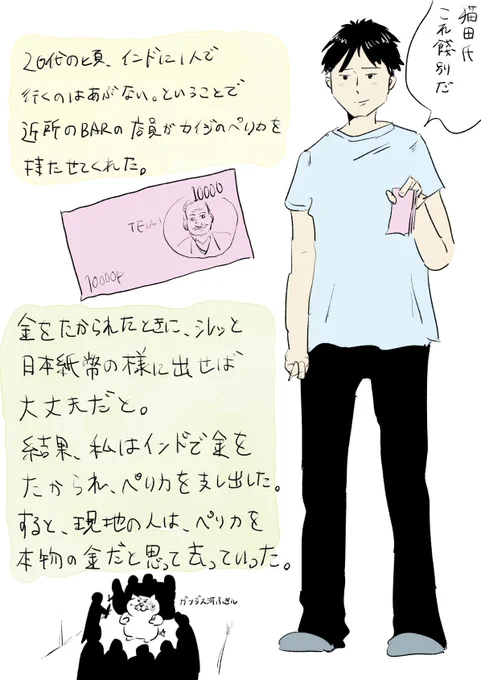 猫田氏
これ餞別だ
20代の頃、インドに1人で
行くのはあぶない。ということで
近所のBARの店員がカイジのペリカを
持たせてくれた。
10000
TEIAI
10000P
金をたかられたときに、シレッと
日本紙幣の様に出せば
大丈夫だと。
結果、私はインドで金を
たかられ、ペリカを差し出した。
すると、現地の人は、ペリカを
本物の金だと思って去っていった。